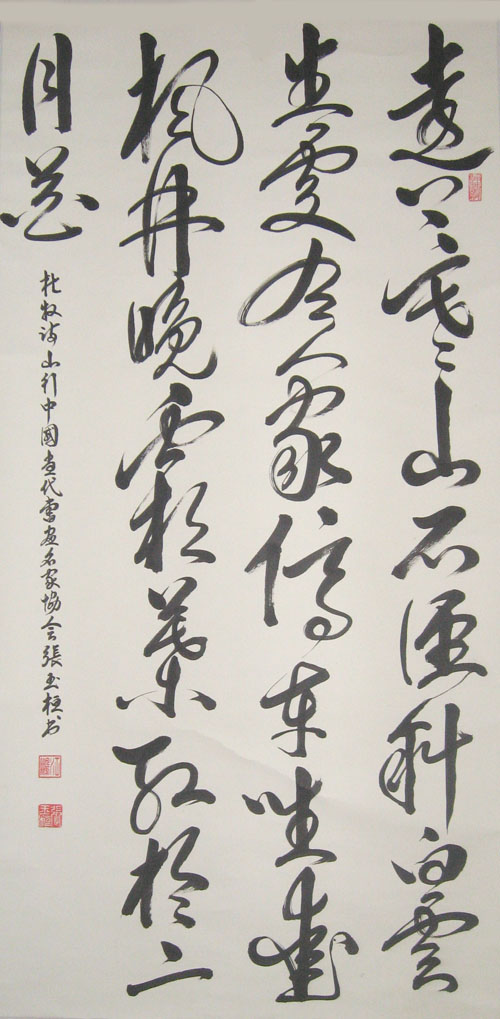 遠上寒山石徑斜白雲
生處有人家停車坐愛
楓林晚霜葉紅於二
月花
杜牧诗山行中國當代書畫名家協会張玉书